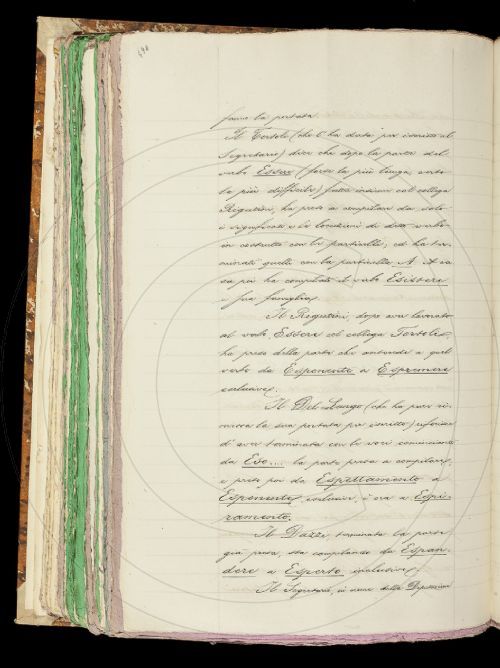 698
fanno la portata.
Il Tortoli (che l'ha data per iscritto al
Segretario) dice che dopo la parte del
verbo Essere (forse la più lunga, certo
la più difficile) fatta insieme col collega
Rigutini, ha preso a compilare da solo
i significati e le locuzioni di detto verbo
in costrutto con le particelle; ed ha ter-
minati quelli con la particella A. A ca
sa poi ha compilato il verbo Esistere
e sua famiglia.
Il Rigutini dopo aver lavorato
al verbo Essere col collega Tortoli,
ha preso della parte che antecede a quel
verbo da Esponente a Esprimere
inclusive.
Il Del Lungo (che ha pure ri-
messa la sua portata per iscritto) riferisce
d'aver terminata con le voci comincianti
da Evo.... la parte presa a compilare,
e preso poi da Espettamento a
Esponente, esclusive, è ora a Espi-
ramento.
Il Dazzi, terminata la parte
già presa, sta compilando da Espan-
dere a Esperto inclusive.
Il Segretario, in nome della Deputazione